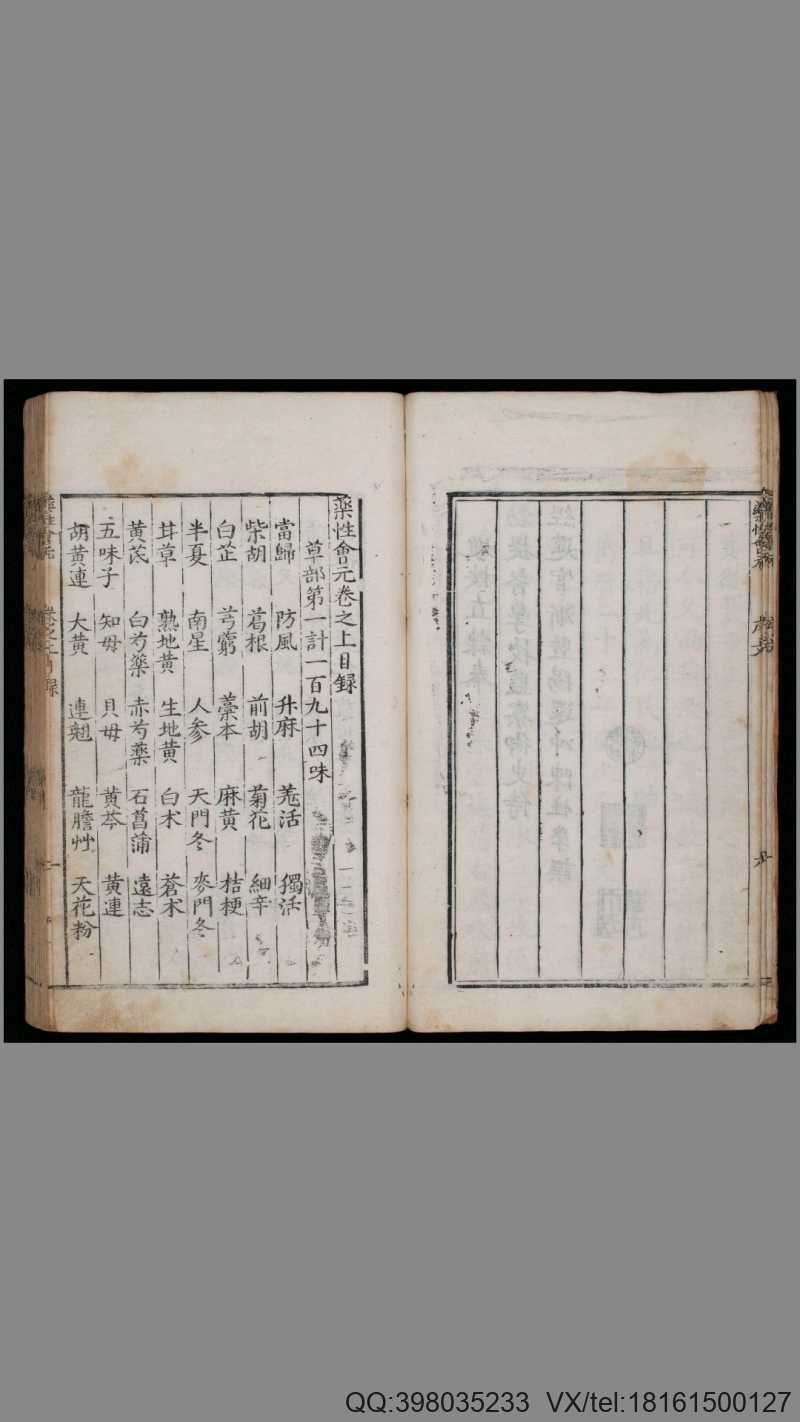 藥性會元卷之上目錄
草部第一計一百九十四味
當歸 防風 升麻 羌活 獨活
柴胡 葛根 前胡 菊花 細辛
白芷 芎藭 藁本 麻黃 桔梗
半夏 南星 人参 天門冬 麥門冬
甘草 熟地黃 生地黃 白术 蒼术
黃芪 白芍藥 赤芍藥 石菖蒲 遠志
五味子 知母 貝母 黃芩 黃連
胡黃連 大黃 連翹 龍膽艸 天花粉
QQ:398035233 VX/tel:18161500127